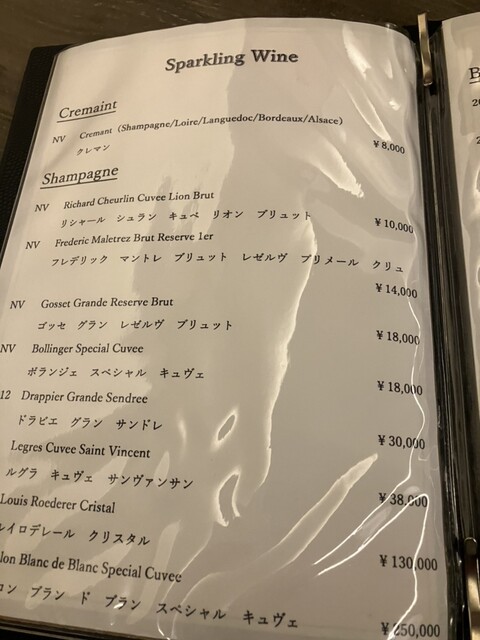 Sparkling Wine
Cremaint
NV Cremant (Shampagne/Loire/Languedoc/Bordeaux/Alsace)
クレマン
¥8,000
Shampagne
NV Richard Cheurlin Cuvee Lion Brut
リシャール シュラン キュペ リオン ブリュット
¥10,000
NV Frederic Maletrez Brut Reserve 1er
フレデリック マントレ ブリュット レゼルヴ プリメール クリュ
¥14,000
NV Gosset Grande Reserve Brut
ゴッセ グラン レゼルヴ ブリュット
¥18,000
NV Bollinger Special Cuvee
ボランジェ スペシャル キュヴェ
¥18,000
12 Drappier Grande Sendree
ドラピエ グラン サンドレ
¥30,000
Legres Cuvee Saint Vincent
ルグラ キュヴェ サンヴァンサン
¥38.000
Louis Roederer Cristal
ルイロデレール クリスタル
¥130,000
lon Blanc de Blanc Special Cuvee
ロン ブラン ド ブラン スペシャル キュヴェ
¥250,000
B
20